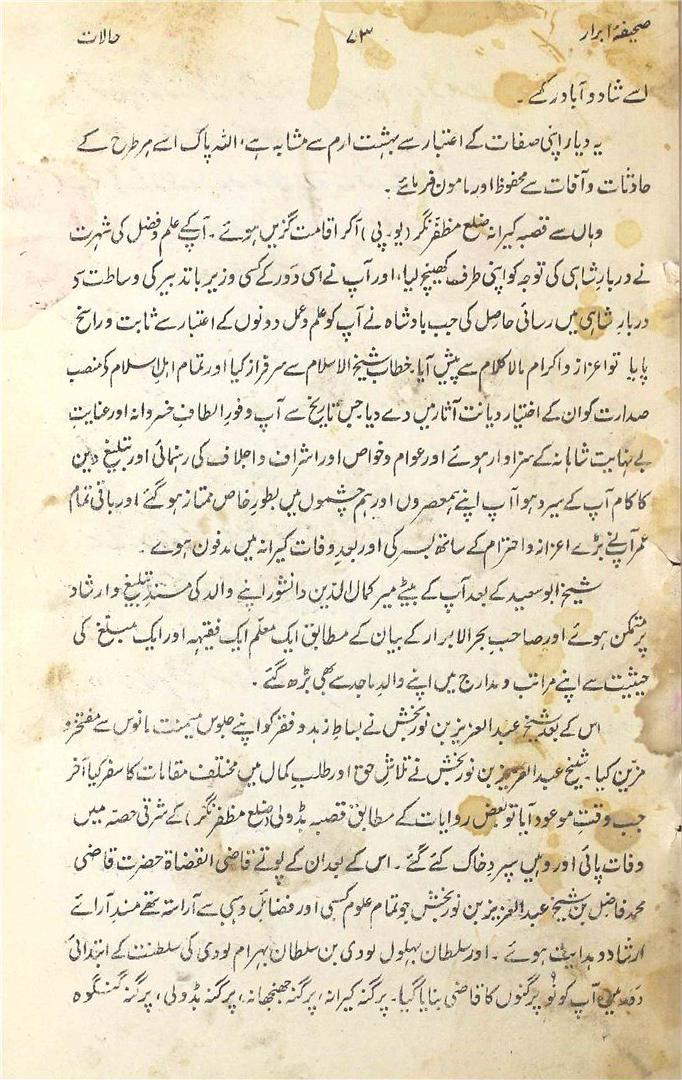 صحیفۂ ابرار ۷۳ حالات
اسے شاد و آباد رکھے ۔
یہ دیار اپنی صفات کے اعتبار سے بہشت ارم سے مشابہ ہے، اللہ پاک اسے ہر طرح کے
حادثات و آفات سے محفوظ اور مامون فرمائے ۔
وہاں سے قصبہ کیرانہ ضلع مظفر نگر (یو۔پی) آکر اقامت گزیں ہوئے ۔ آپ کے علم و فضل کی شہرت
نے دربارِ شاہی کی توجہ کو اپنی طرف کھینچ لیا، اور آپ نے اسی دَور کے کسی وزیر با تدبیر کی وساطت سے
دربارِ شاہی میں رسائی حاصل کی جب بادشاہ نے آپ کو علم و عمل دونوں کے اعتبار سے ثابت و راسخ
پایا تو اعزاز و اکرام مالا کلام سے پیش آیا۔ خطاب شیخ الاسلام سے سرفراز کیا اور تمام اہلِ اسلام کو منصب
صدارت گو ان کے اختیار دیانت آثار میں دے دیا جس تاریخ سے آپ وفورِ الطاف خسروانہ اور عنایت
بے نہایت شاہانہ کے سزاوار ہوئے اور عوام و خواص اور اشراف و اجلاف کی رہنمائی اور تبلیغ دین
کا کام آپ کے سپرد ہوا آپ اپنے ہمعصروں اور ہم چشموں میں بطورِ خاص ممتاز ہو گئے اور باقی تمام
عمر آپ نے بڑے اعزاز و احترام کے ساتھ بسر کی اور بعدِ وفات کیرانہ میں مدفون ہوے ۔
شیخ ابو سعید کے بعد آپ کے بیٹے میر کمال الدین دانشور اپنے والد کی مسندِ تبلیغ و ارشاد
پر متمکن ہوئے اور صاحب بحر الابرار کے بیان کے مطابق ایک معلّم ایک فقیہہ اور ایک مبلغ کی
حیثیت سے اپنے مراتب و مدارج میں اپنے والدِ ماجد سے بھی بڑھ گئے ۔
اس کے بعد شیخ عبد العزیز بن نور بخش نے بساطِ زہد و فقر کو اپنے جلوس میمنت مانوس سے مفتخر و
مزیّن کیا ۔ شیخ عبد العزیز بن نور بخش نے تلاشِ حق اور طلبِ کمال میں مختلف مقامات کا سفر کیا آخر
جب وقتِ موعود آیا تو بعض روایات کے مطابق قصبہ بڈولی (ضلع مظفر نگر) کے شرقی حصہ میں
وفات پائی اور وہیں سپردِ خاک کئے گئے ۔ اس کے بعد ان کے پوتے قاضی القضاۃ حضرت قاضی
محمد فاضل بن شیخ عبد العزیز بن نور بخش جو تمام علوم کسبی اور فضائل وہبی سے آراستہ تھے مسند آرائے
ارشاد و ہدایت ہوئے ۔ اور سلطان بہلول لودی بن سلطان بہرام لودی کی سلطنت کے ابتدائی
دَور میں آپ کو نَو پرگنوں کا قاضی بنایا گیا۔ پرگنہ کیرانہ، پرگنہ جھنجھانہ، پرگنہ بڈولی، پرگنہ گنگوہ